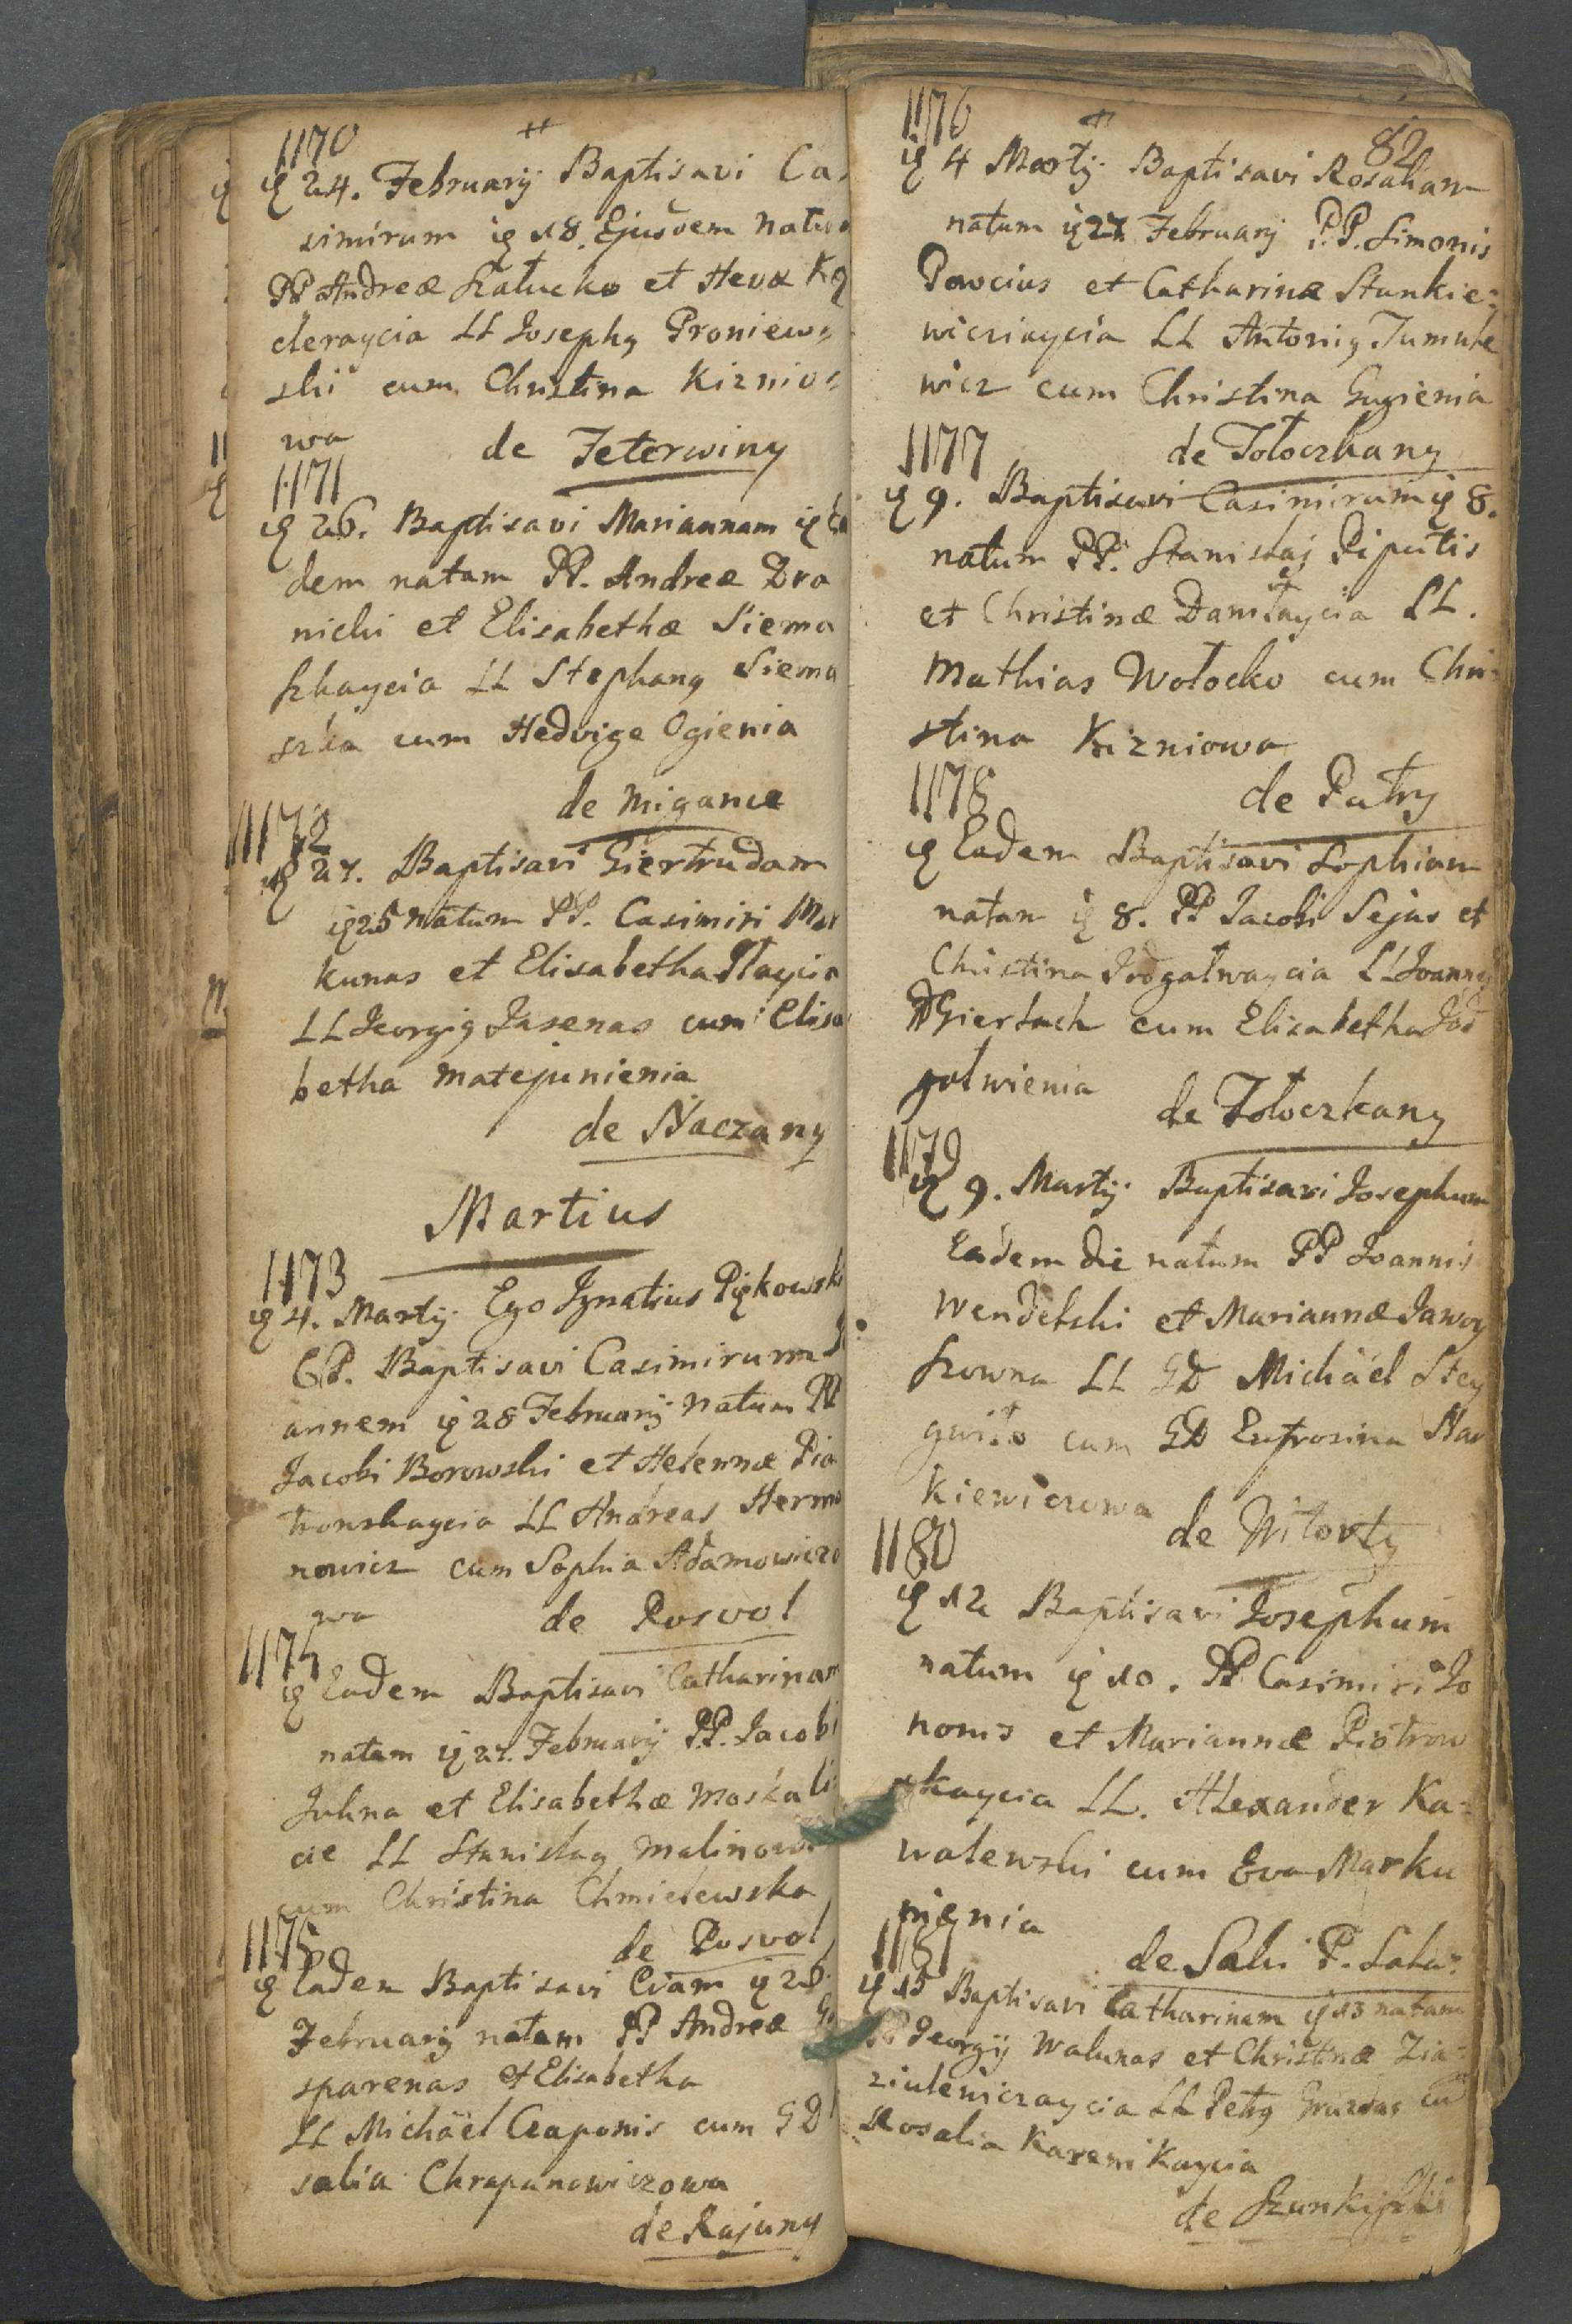 1170
24. Februarij Baptisavi Ca-
simirum 18. Ejusdem natum
PP Andreæ Szałucko et Hevæ
deraycia LL Josephq Proniew-
ski cum Christina Kiznio-
wa de Jeterwiny
1171
26. Baptisavi Mariannam
dem natam PP. Andreæ Dro
nicki et Elisabethæ Siema
szkaycia LL Stephanq Siema
szka cum Hedvige Ogienia
de Migance
1172
27. Baptisavi Giertrudam
25 natam PP. Casimiri Mar
kunas et Elisabetha
LL Georgiq Jasenas cum Elisa
betha Matejunienia
de Naczany
Martius
1173
4. Martij. Ego Ignatius Piękowski
CP. Baptisavi Casimirum Jo
annem 28 Februarij natum PP
Jacobi Borowski et Helennæ Pio
trowskaycia LL Andreas Hermo
nowicz cum Sophia Adamowiczo
wa de Poswol
1174
Eadem Baptisavi Catharinam
natam 27. Februarij PP. Jacobi
Juhna et Elisabethæ Moskali
cie LL Stanislaq Malinow
cum Christina Chmielewska
de Poswol
1175
Eadem Baptisavi Evam 28.
Februarij natam PP Andreæ Ga
sparenas et Elisabetha
LL Michäel Czaponis cum GD
salia Chrapunowiczowa
de Rajuny
82
1176
4 Martij Baptisavi Rosaliam
natam 27. Februarij P.P. Simonis
Powcius et Catharinæ Stankie-
wicziaycia LL Antoniq Tumule
wicz cum Christina Gugienia
1177 de Tołoczkany
9. Baptisavi Casimirum 8.
natum PP. Stanislaj Piputis
et Christinæ Daniłaycia LL.
Mathias Wołocko cum Chri-
stina Kizniowa
1178 de Patry
Eadem Baptisavi Sophiam
natam 8. PP Jacobi Sejus et
Christina Jodgalwaycia LL Joannes
Giertach cum Elisabetha Jod
golwienia
de Tołoczkany
1179
9. Martij Baptisavi Josephum
Eadem die natum PP Joannis
Wendelski et Mariannæ Jawoy
szowna LL GD Michäel Stey
gwiło cum GD Eufrosina Nar
kiewiczowa
de Witorty
1180
12 Baptisavi Josephum
natum 10. PP Casimiri Jo
nonis et Mariannæ Piotrow
skaycia LL. Alexander Ka-
walewski cum Eva Marku
nienia
de Salki P. Sala-
1181
15 Baptisavi Catharinam 13 natam
PP Georgij Walunas et Christinæ Zia-
ziulewiczaycia LL Petrq Gruzdas cu
Rosalia Karenikaycia
de Szunkiszki